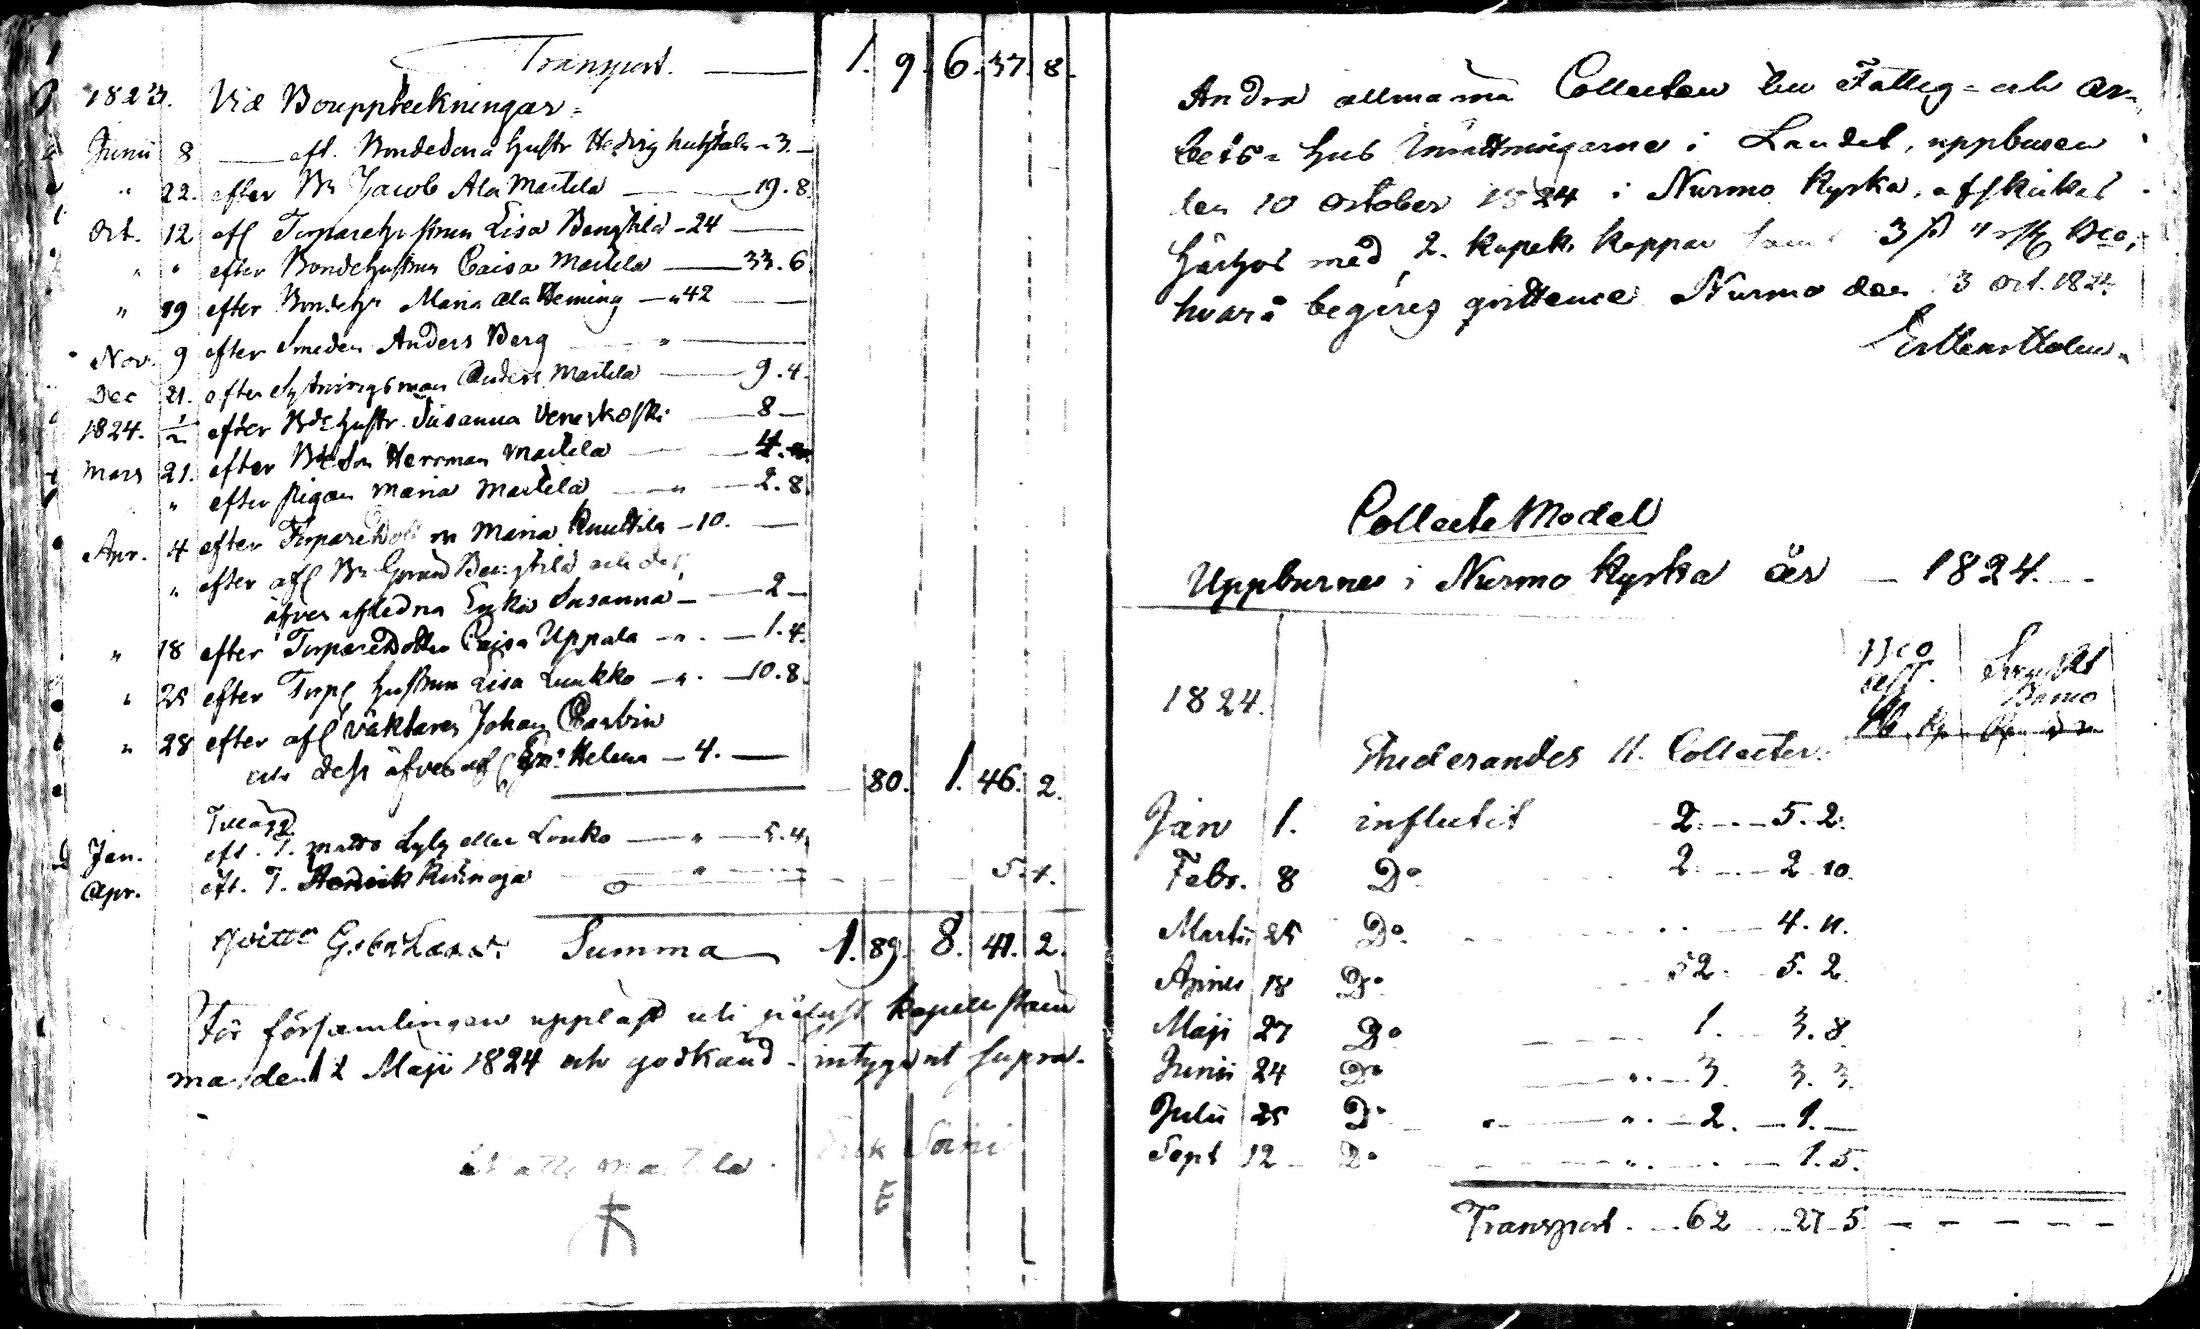 Transport. — 1. 9. 6. 37. 8.
1823. Vid Bouppteckningar =
Junii 8 — eft. Bondedena Hustr Hedvig — 3. —
" 22. efter Bn Jacob Ala Martela — 19. 8.
Oct. 12 afl Torparehustrun Lisa Bengtila — 24 —
" " efter Bondehustrun Caisa Martela — 33. 6
" 19 efter Bondehu Maria Ala Heming — " 42 —
Nov. 9 efter Smeden Anders Berg — " —
Dec 21. efter Sytningsman Anders Martela — 9. 4.
1824. 1/2 efter Bde Hustr. Susanna Veneskoski — 8 —
Mars 21. efter Bde Son Herrman Martela — 4.
" efter pigan Maria Martela — " — 2. 8.
Apr. 4 efter Torparedott Maria Knuttila — 10. —
" efter afl Bn Bengtila och dess
äfven afledna Enka Susanna — 2 —
" 18 efter Torparedotter Caisa Uppala — " . — 1. 4.
" 25 efter Torp Hustrun Lisa Luukko — " . — 10. 8.
" 28 efter afl väktaren Johan Carbin
och dess äfven afl Helena — 4. —
80. 1. 46. 2.
Tillägg
Jan. eft. T. Matts Lyly eller Louko — " — 5. 4.
Apr. eft. T. Henrik — " — 5. 4.
Summa 1. 89. 8. 41. 2.
För församlingen uppläst uti kapell stäm
ma den 2 Maji 1824 och godkänd - intygar ut supra.
Matts Martela. Erik Soini
E
Andra allmänna Collecten till Fattig- och Ar-
bets- Hus Inrättningarne i Landet, uppburen
den 10 October 1824 i Nurmo Kyrka, afskickas
härhos med 2. kopek koppar samt 3 Bco,
hvarå begäres qvittence Nurmo den 3 Oct. 1824.
Collecte Medel
Uppburne i Nurmo Kyrka år — 1824. —
1824. Bco
Studerandes 11. Collecter.
Jan 1. influtit 2. — 5. 2.
Febr. 8 Do 2. — 2. 10.
Martii 25 Do — 4. 11.
Apriles 18 Do 52. 5. 2
Maji 27 Do 1. 3. 8.
Junii 24 Do " — 3. 3. 3.
Julii 25 Do " — 2. — 1. —
Sept 12 — Do " — 1. 5.
Transport. — 62 — 27 — 5 — — — — —